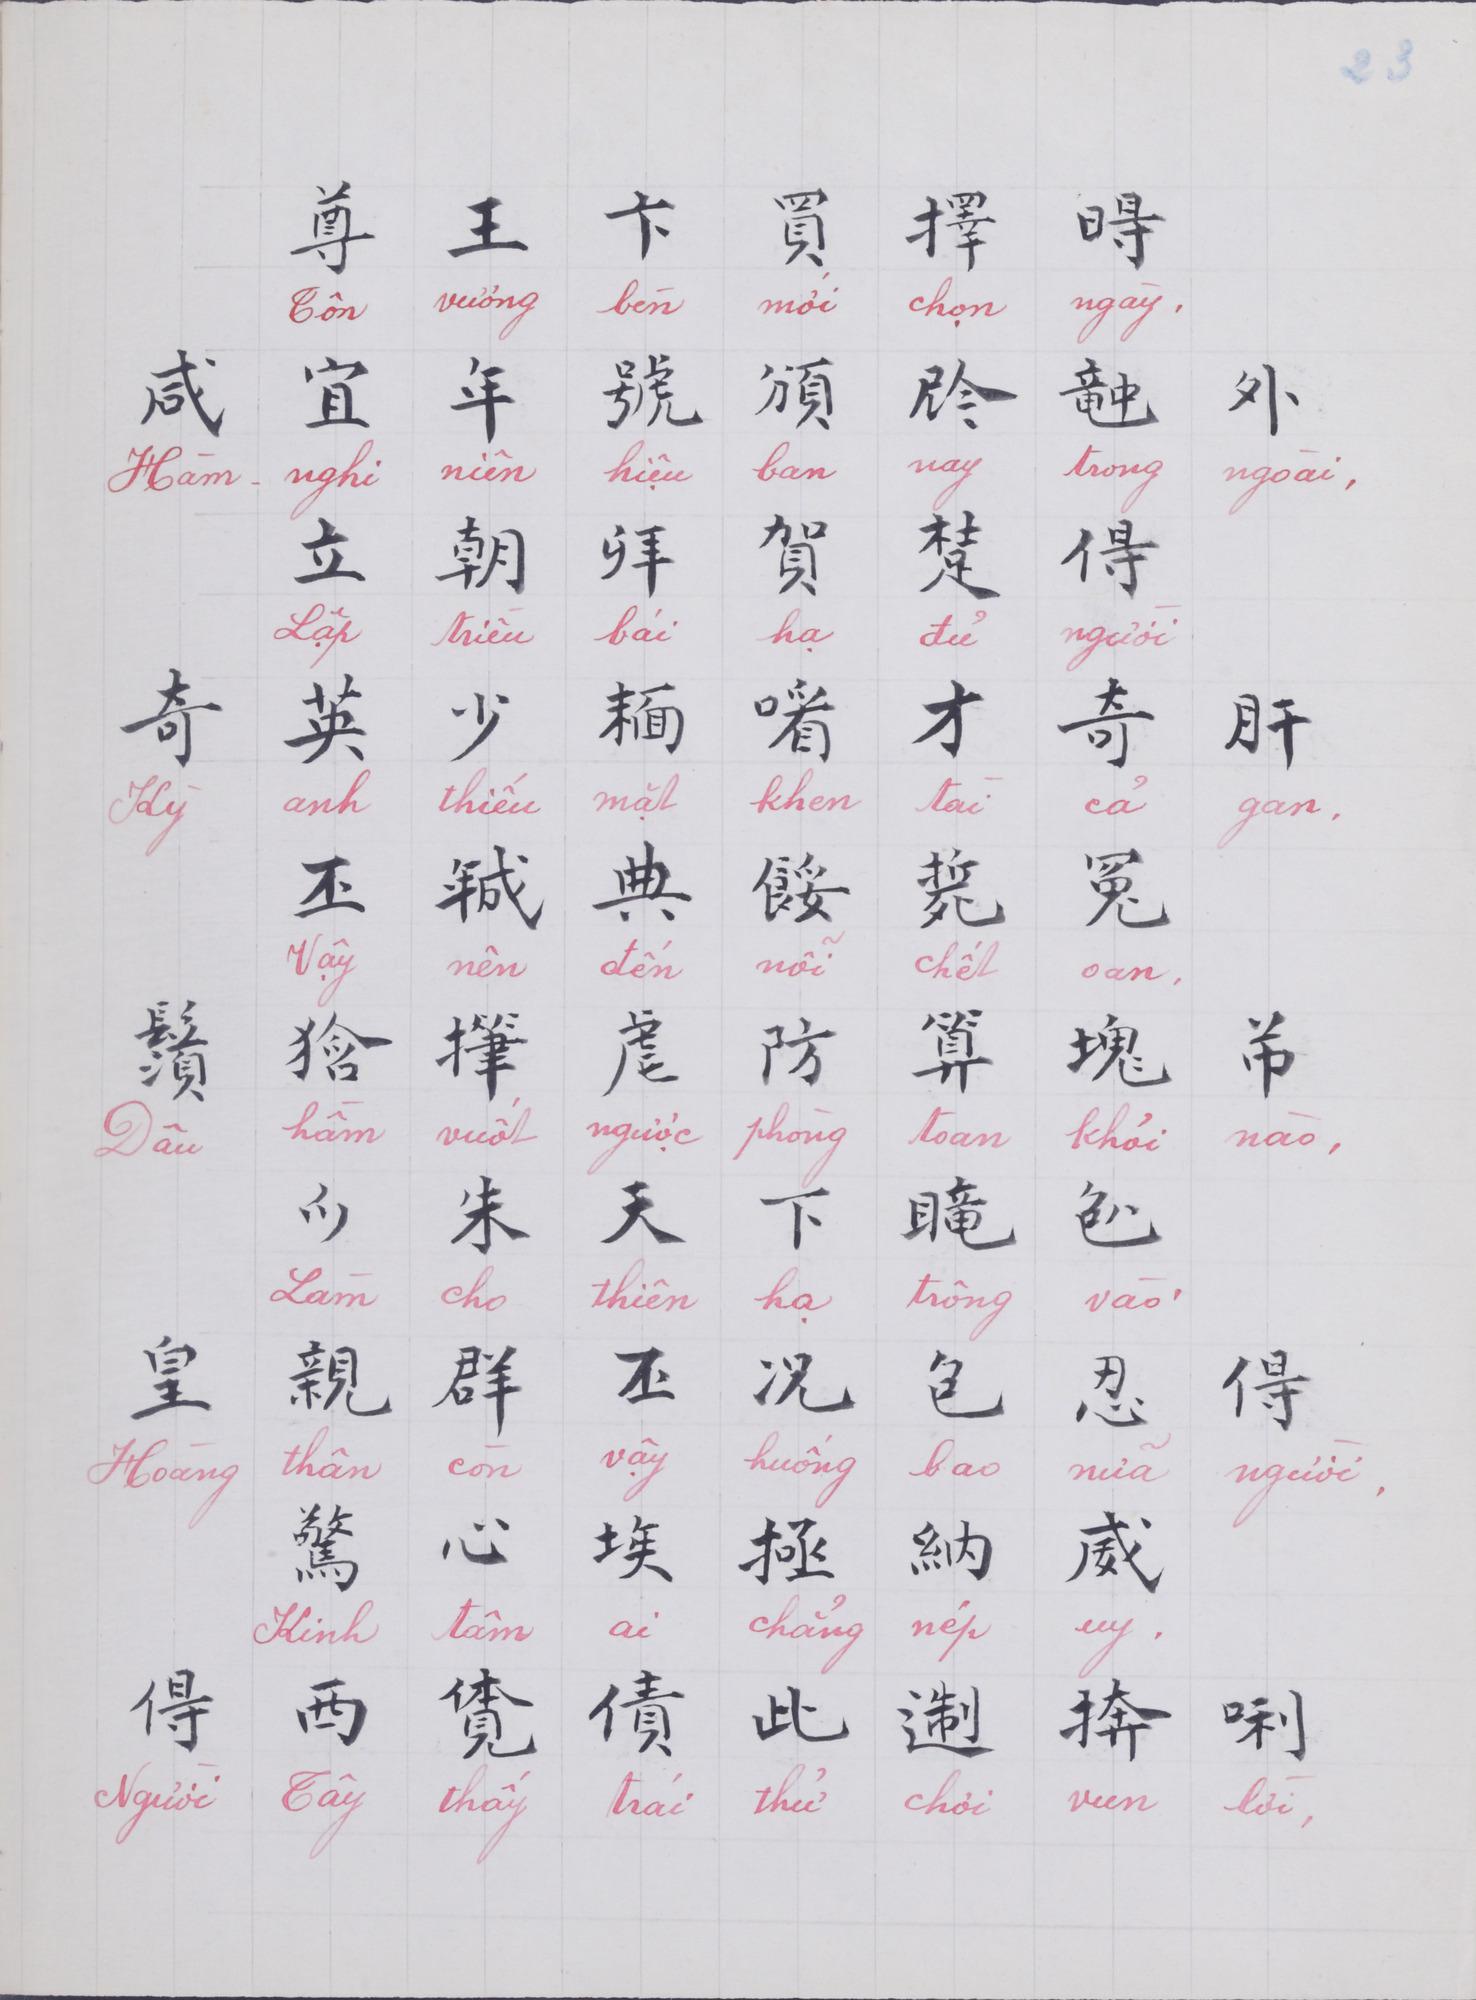 23
尊 王 卞 買 擇 𣈜
Tôn vương bèn mới chọn ngày,
咸 宜 年 號 頒 𫢩 𥪝 外
Hàm-nghi niên hiệu ban nay trong ngoài,
立 朝 拜 賀 𨇜 㝵
Lập triều bái hạ đủ người
奇 英 少 𩈘 𠸦 才 奇 肝
Kỳ anh thiếu mặt khen tài cả gan,
丕 𢧚 典 餒 𣩂 冤
Vậy nên đến nỗi chết oan,
鬚 㺧 虐 防 算 塊 帋
Dâu hầm vuốt ngược phòng toan khỏi nào,
朱 天 下 𥊚 𠓨
Làm cho thiên hạ trông vào
皇 親 群 丕 况 包 忍 㝵
Hoàng thân còn vậy huống bao nữa người,
驚 心 埃 拯 納 威
Kinh tâm ai chẳng nép uy,
㝵 西 𧡊 債 此 搩 唎
Người Tây thấy trái thử chơi vun lời,